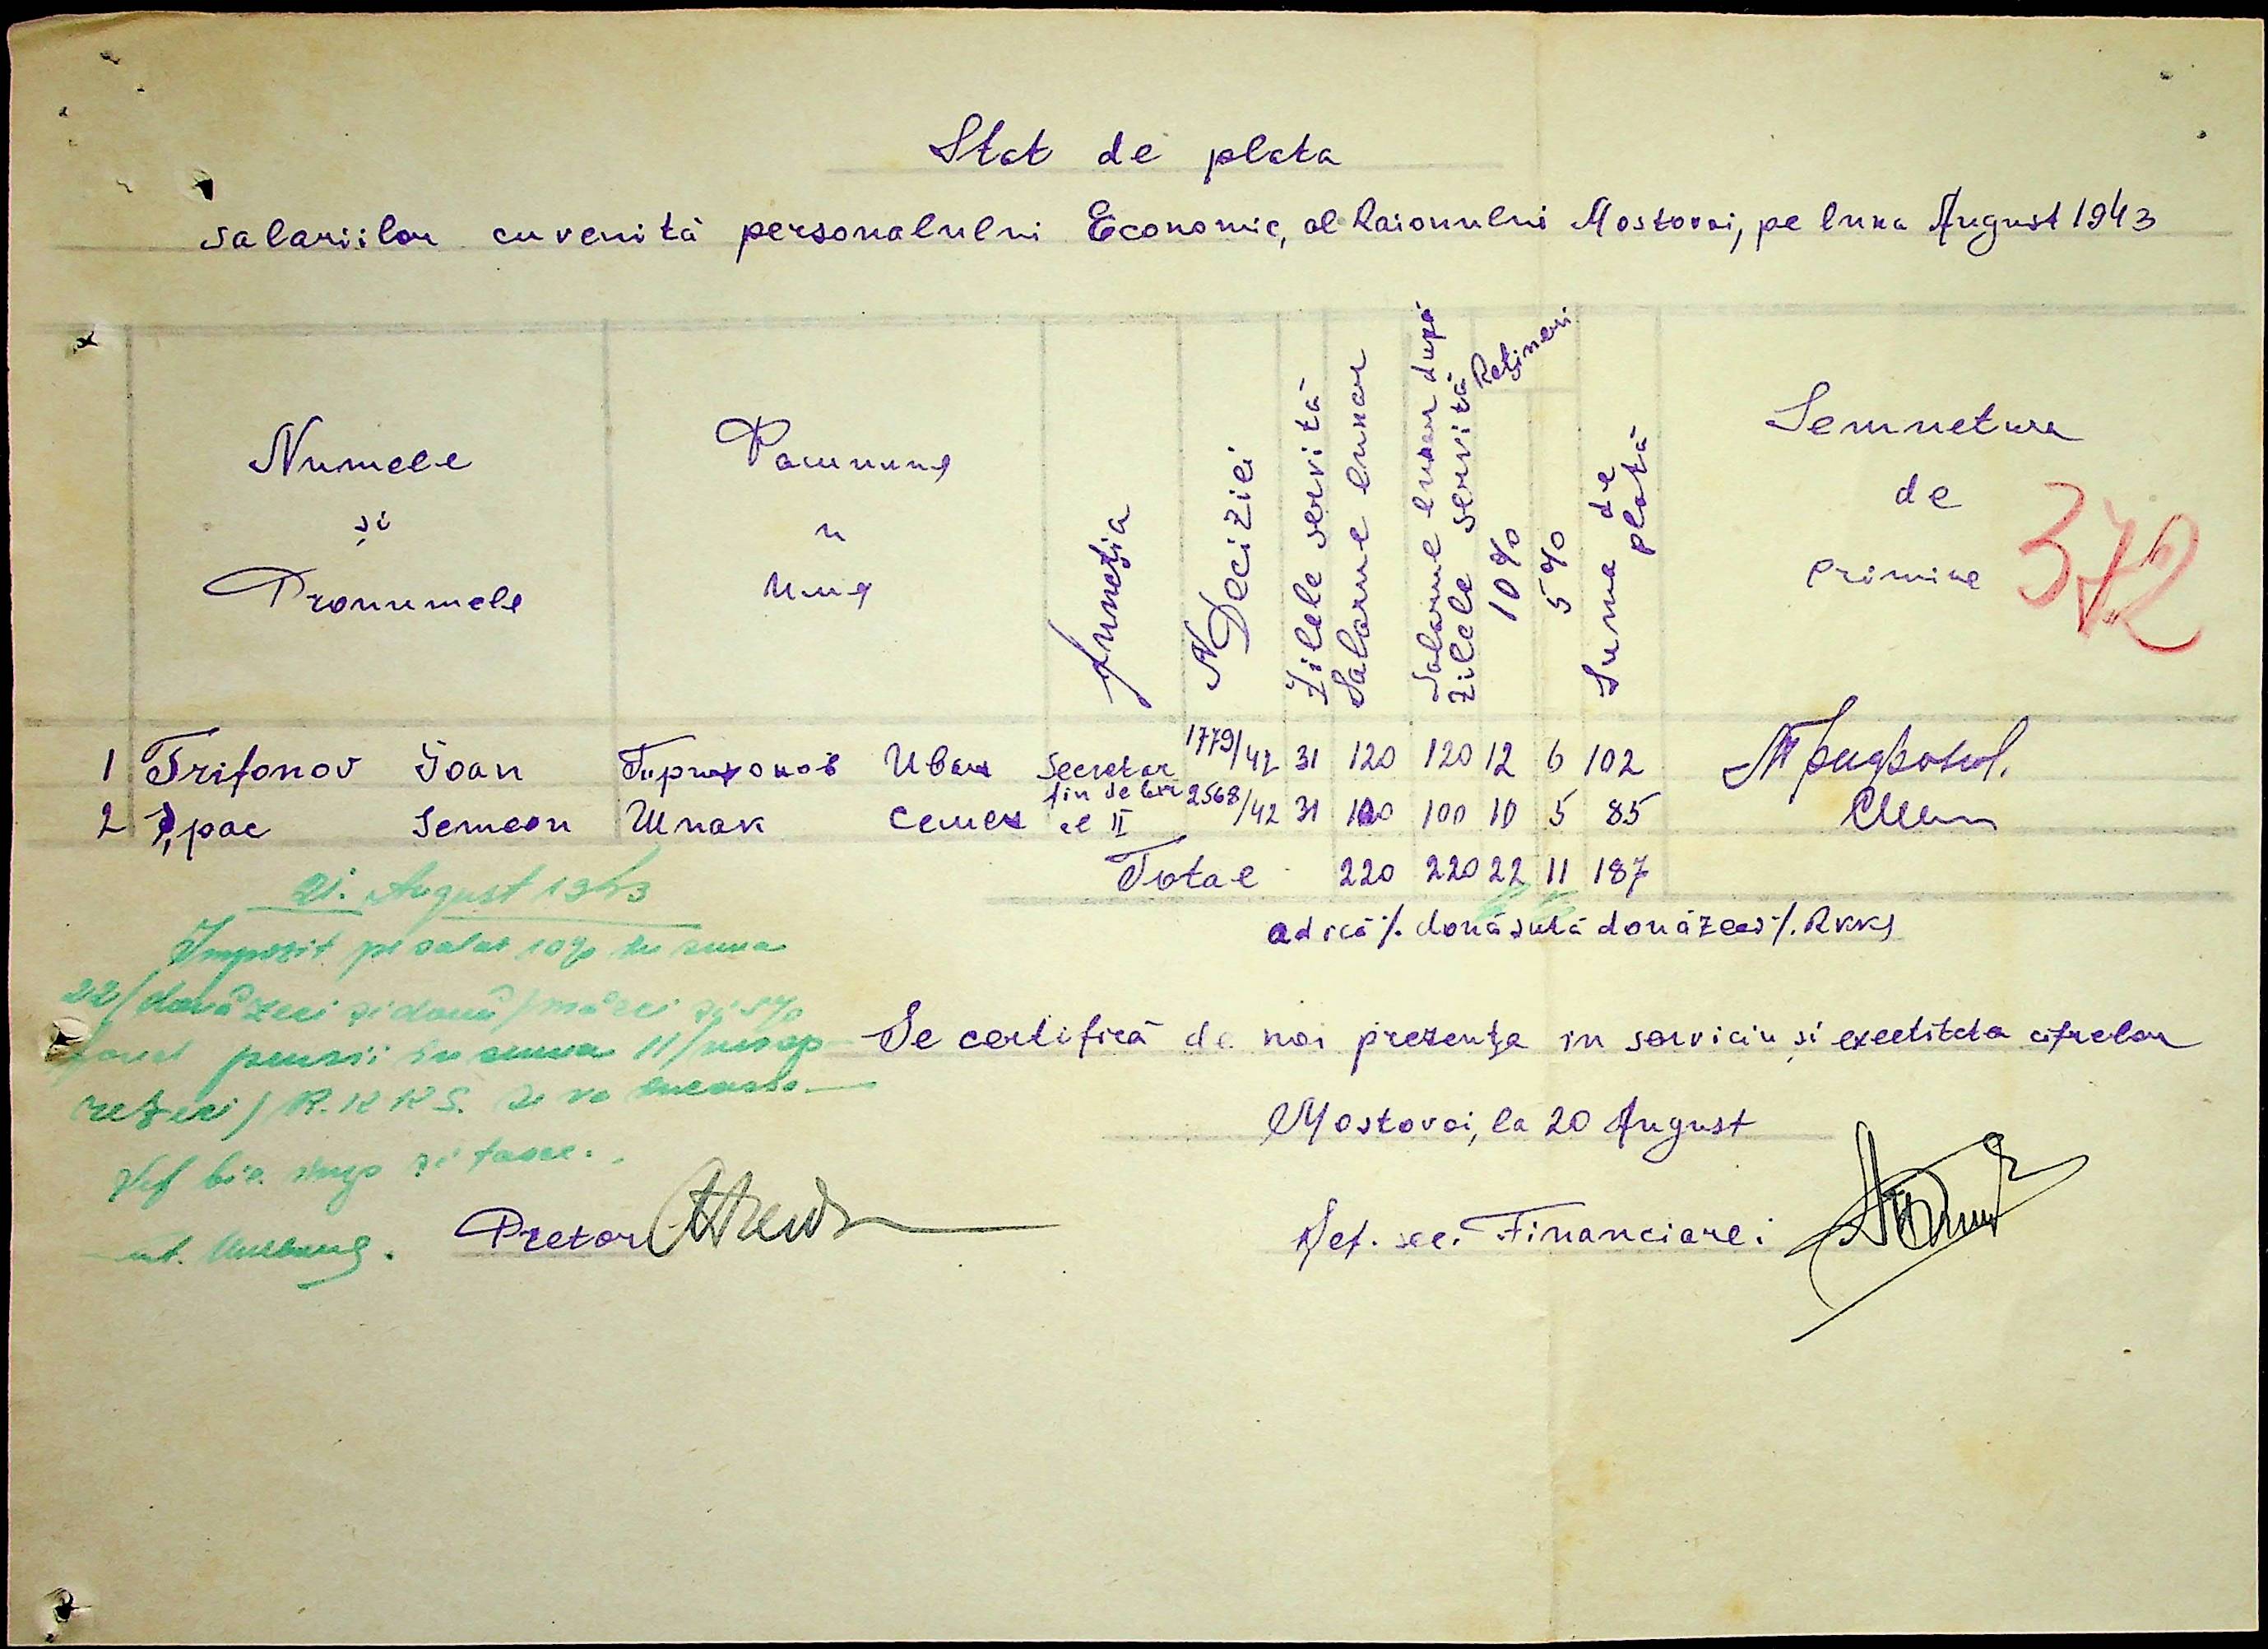 Stat de plata
salariilor cuvenită personalului Economic, al Raionului Mostovoi, pe luna August 1943
Numele
și
Pronumele
Фамилия
и
имя
funcția
N Deciziei
Zilele servită
Salarue lunar
Salarue lunar după
zilele servită
Rețineri
10%
5%
Suma de
plată
Semnetura
de
primire
372
1 Trifonov Ioan Тирифонов Иван Secretar 1779/42 31 120 120 12 6 102 Трифонов.
2 Șpac Semeon Шпак Семен fin de la II 2568/42 31 100 100 10 5 85
Total 220 220 22 11 187
adică ·/. două sută două zeci ·/. Rkks
21. August 1943
Impozit pe salar 10% în suma
22/două zeci și două/mărci și 5%
fond pensii în suma 11/unsp-
rezeci/ R.K.K.S. se va încasa
Șef bir. imp și taxe.
Se certifică de noi prezența in serviciu și exectitata cifrelor
Mostovoi, la 20 August
Pretor
Șef. sec. Financiarei